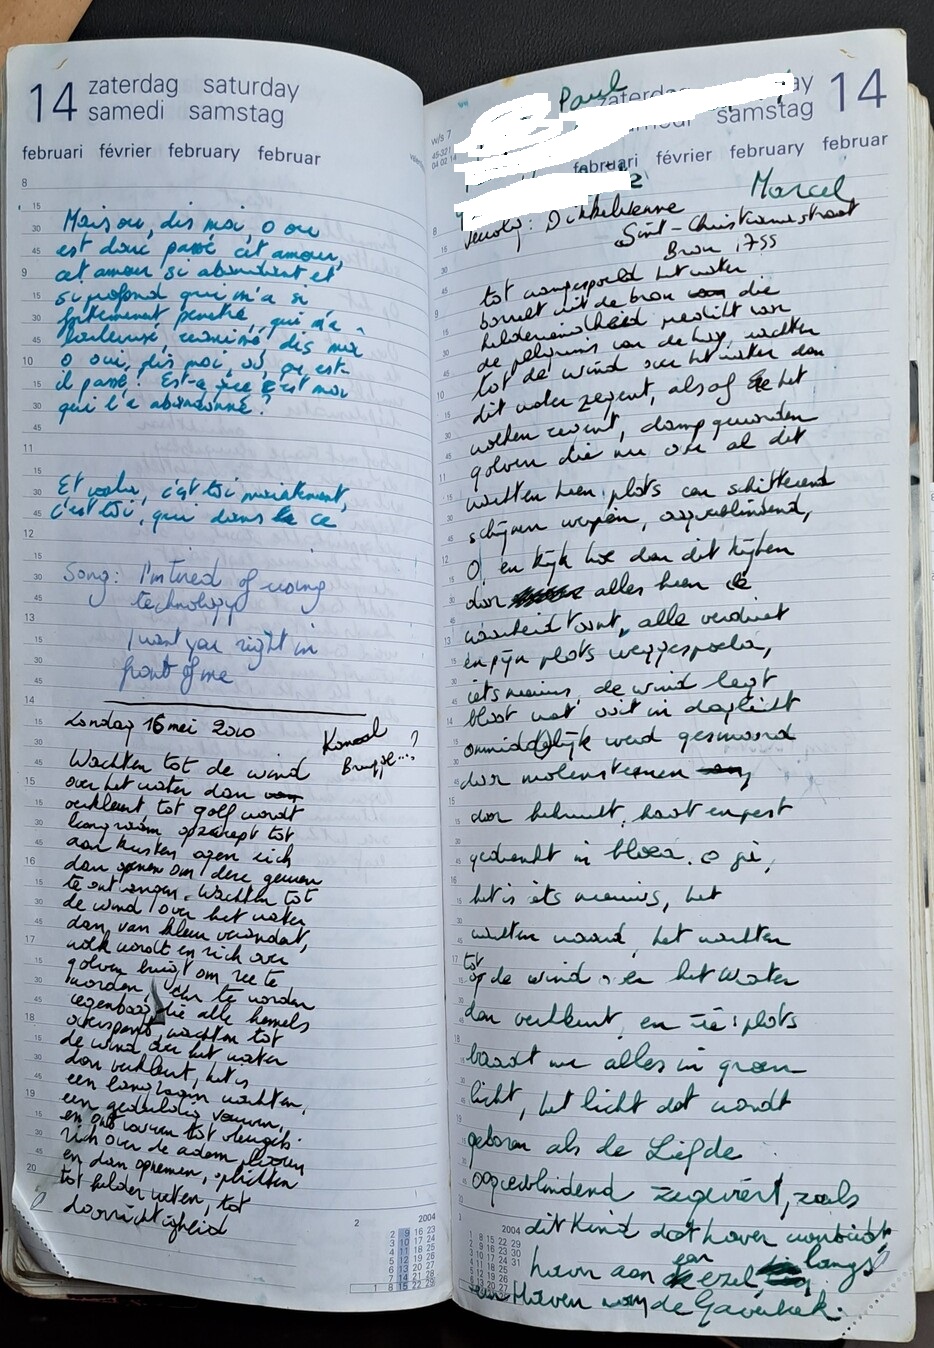 14 zaterdag saturday
samedi samstag
februari février february februar
Mais ou, dis moi, o ou
est donc passé cet amour,
cet amour si abondant et
si profond qui m'a si
fortement penetré, qui m'a
bouleversé, ranimé, dis moi
o oui, dis moi, où, ou est-
il passé? Est-ce que c'est moi
qui l'a abandonné?
Et voila, c'est toi maintenant,
c'est toi, qui dans ce
Song: I'm tired of using
technology
I want you right in
front of me
Zondag 16 mei 2010
Kanaal
Brugge...?
Wachten tot de wind
over het water dan
verkleurt tot golf wordt
langzaam opzweept tot
aan kusten ogen zich
dan openen om deze
te ontvangen. Wachten tot
de wind over het water
dan van kleur verandert,
wolk wordt en zich over
golven buigt om zee te
worden, om te worden
regenboog die alle hemels
overspant, wachten tot
de wind over het water
dan verkleurt, het is
een langzaam wachten,
een geduldig vouwen,
en ontvouwen tot vleugels
zich over de adem
en dan opnemen, oplichten
tot helder weten, tot
doorzichtigheid
2 2004
2 9 16 23
3 10 17 24
4 11 18 25
5 12 19 26
6 13 20 27
7 14 21 28
1 8 15 22 29
Paul
zaterdag
samstag 14
februari février february februar
Marcel
Dikkelvenne
Sint-Christianastraat
Bron 1755
tot aangespoeld het water
borrelt uit de bron die
helderheid verlicht van
de pelgrims van de weg, wachten
tot de wind over het water dan
dit water zegent, alsof het
wolken revent, damp geworden
golven die nu over al dit
wachten heen plots een schitterend
schijnen werpen, oogverblindend,
O, en kijk hoe dan dit kijken
door alles heen de
waarheid toont, alle verdriet
en pijn plots weggespoeld,
iets nieuws, de wind legt
bloot wat ooit in daglicht
onmiddellijk werd gesmoord
door molenstenen
door hebzucht, haat en pest
gedrenkt in bloed. O jé,
het is iets nieuws, het
wachten waard, het wachten
tot
op de wind over het water
dan verkleurt, en zie: plots
baadt nu alles in groen
licht, het licht dat wordt
geboren als de Liefde
oogverblindend zegeviert, zoals
dit kind dat haver aanbiedt
haver aan een ezel langs
de Gaverbeek.
2004
1 8 15 22 29